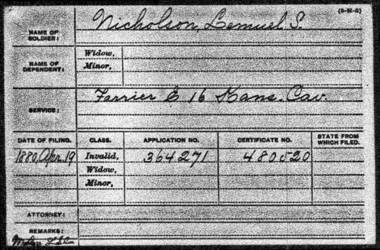 (3-M-6)
NAME OF SOLDIER: Nicholson, Lemuel S.
NAME OF DEPENDENT: Widow,
Minor,
SERVICE: Farrier E 16 Kans. Cav.
DATE OF FILING. CLASS. APPLICATION NO. CERTIFICATE NO. STATE FROM WHICH FILED.
1880, Apr. 19 Invalid, 364271 480520
Widow,
Minor,
ATTORNEY:
REMARKS: